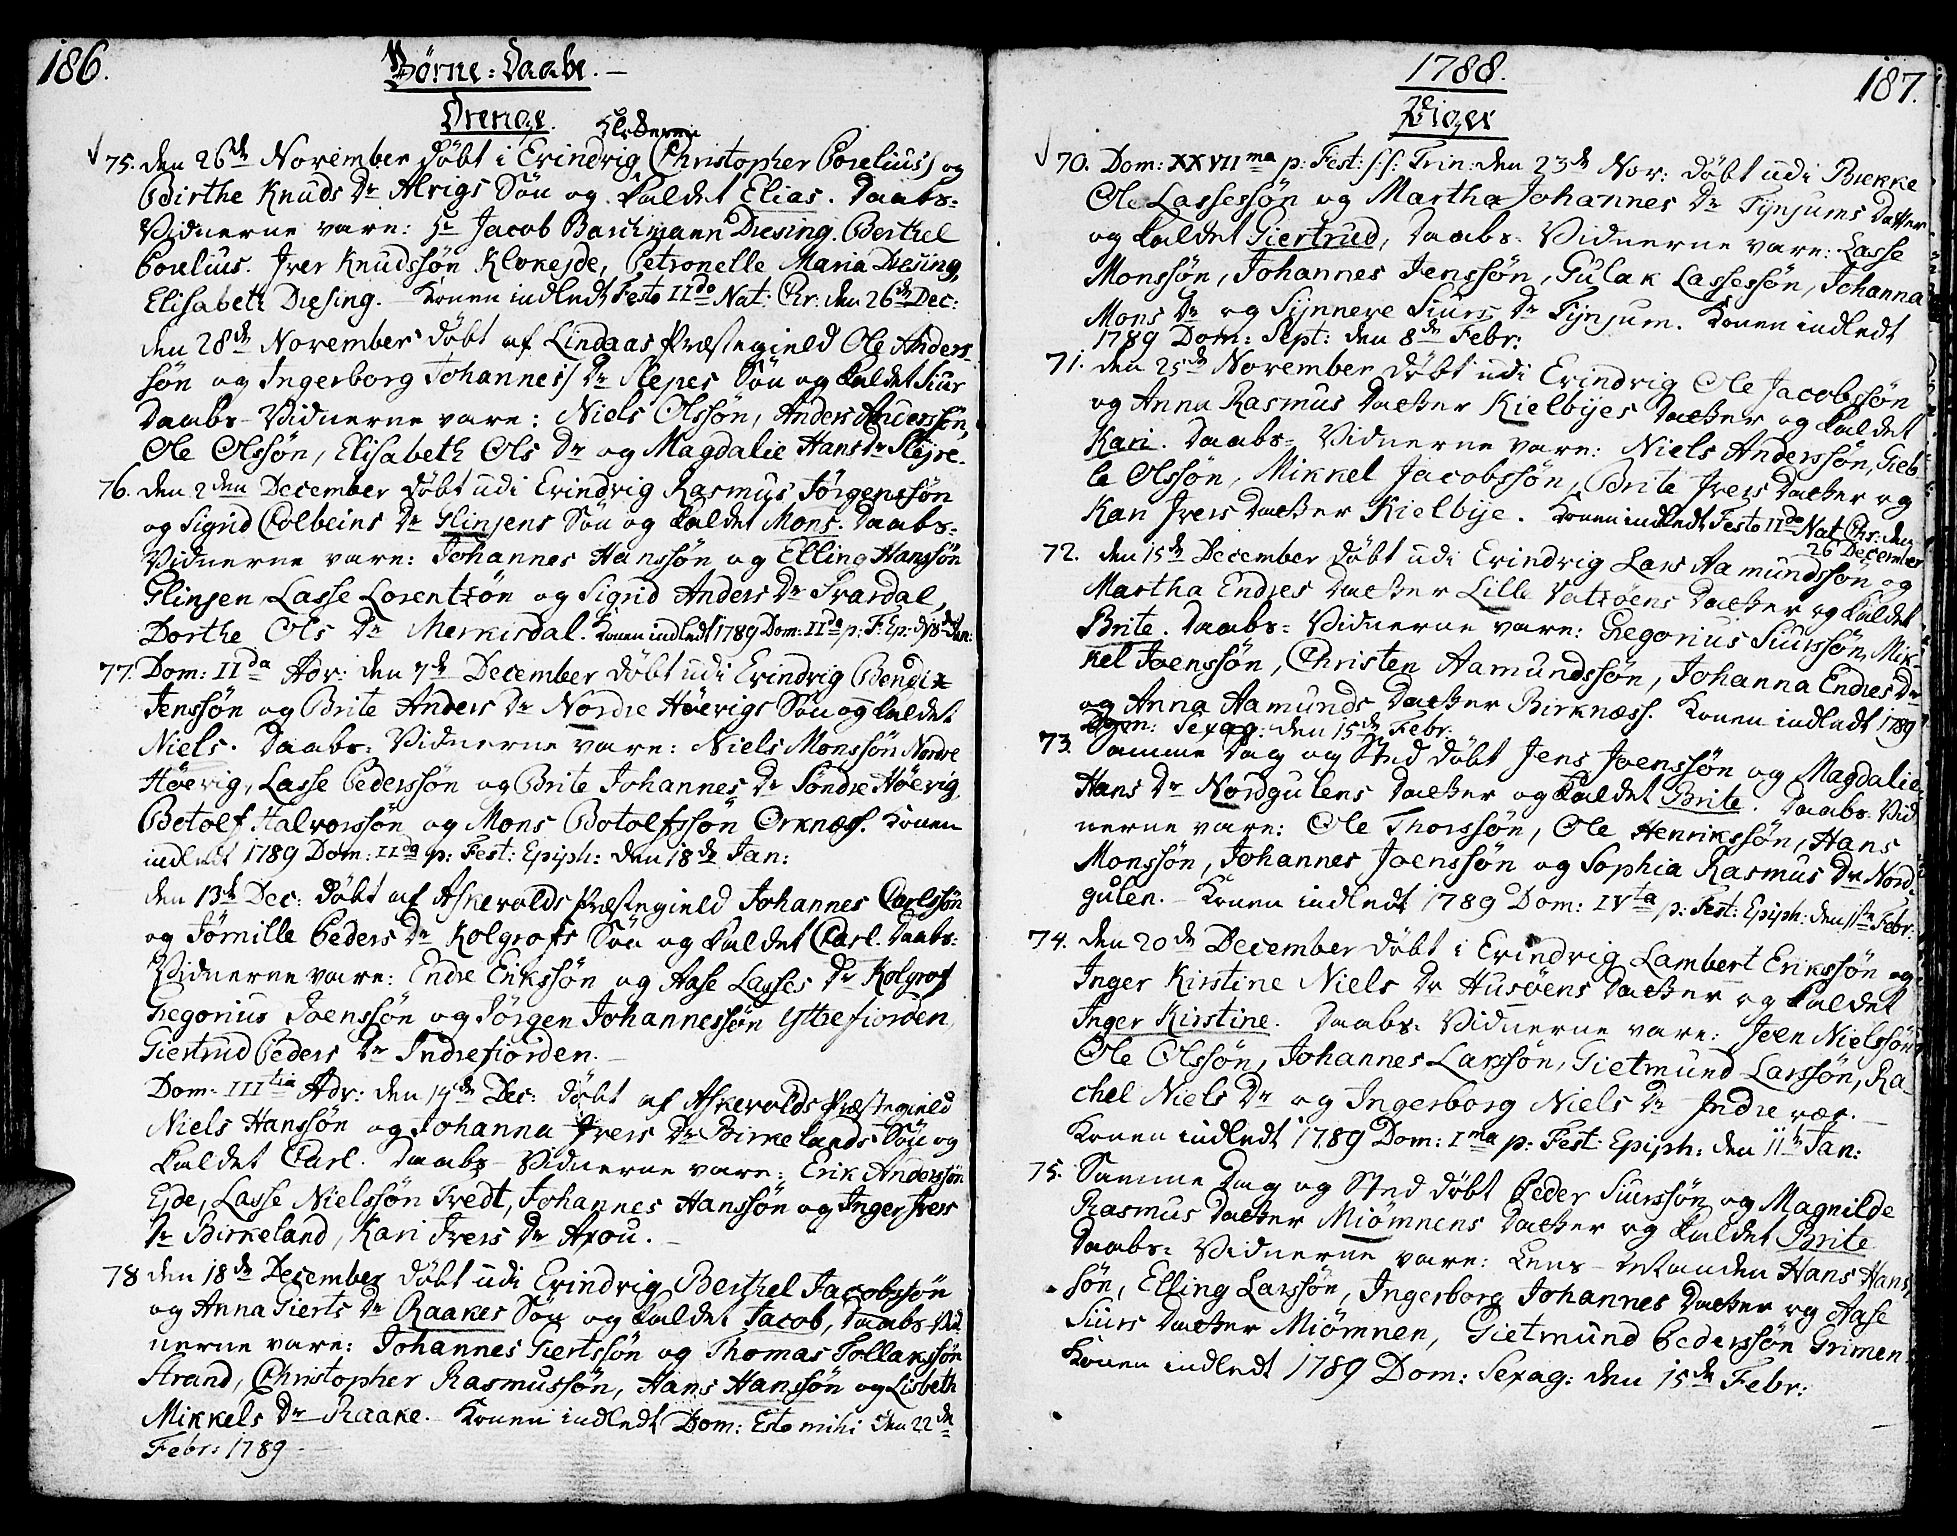 186.
Börne=Daabe.
Drenge.
75. den 26de November döbt i Evindvig Christopher Corelius) og
Birthe Knuds Dr Alvigs Sön og kaldet Elias. Daabs=
Vidnerne vare: Hr Jacob Barchmann Diesing. Berthel
Corelius. Iver Knudssön Klokejde, Petronelle Maria Diesing,
Elisabeth Diesing. Konen indledt Festo IIdo Nat: Chr: den 26de Dec:
den 28de November döbt af Lindaas Præstegield Ole Anders=
sön og Ingerborg Johannes) Dr Slepes Sön og kaldet Siur
Daabs-Vidnerne vare: Niels Olssön, Anders Anderssön,
Ole Olssön, Elisabeth Ols Dr og Magdalie Hans Dr Slejre.
76. den 2den December döbt udi Evindvig Rasmus Jörgenssön
og Sigrid Colbeins Dr Glinjens Sön og kaldet Mons. Daabs=
Vidnerne vare: Johannes Hanssön og Elling Hanssön
Glinjen, Lasse Lorentzön og Sigrid Anders Dr Svardal,
Dorthe Ols Dr Merkisdal. Konen indledt 1789 Dom: IIda p: F: Ep: d: 18de Jan:
77. Dom: IIda Adv: den 7de December döbt udi Evindvig Bendix
Jenssön og Brite Anders Dr Nordre Höevigs Sön og kaldet
Niels. Daabs: Vidnerne vare: Niels Monssön Nordre
Höevig, Lasse Pederssön og Brite Johannes Dr Söndre Höevig,
Botolf Halvorssön og Mons Botolfssön Orknæss. Konen
indledt 1789 Dom: IIda p: Fest: Epiph: den 18de Jan:
den 13de Dec: döbt af Askevolds Præstegield Johannes Carlssön
og Jörnille Peders Dr Kolgrofs Sön og kaldet Carl. Daabs:
Vidnerne vare: Endre Erikssön og Aase Lasses Dr Kolgrof
Gregorius Joenssön og Jörgen Johannessön Yttrefiorden,
Giertrud Peders Dr Indrefiorden.
Dom: IIItia Adv: den 14de Dec: döbt af Askevolds Præstegield
Niels Hanssön og Johanna Ivers Dr Birkelands Sön og
kaldet Carl. Daabs-Vidnerne vare: Erik Anderssön
Ejde, Lasse Nielssön Tvedt, Johannes Hanssön og Inger Ivers
Dr Birkeland, Kari Ivers Dr
78 den 18de December döbt udi Evindvig Berthel Jacobssön
og Anna Gierts Dr Raakes Sön og kaldet Jacob, Daabs-Vid
nerne vare: Johannes Giertssön og Thomas Tollakssön
Strand, Christopher Rasmussön, Hans Hanssön og Lisbeth
Mikkels Dr Raake. Konen indledt Dom: Esto mihi den 22de
Febr: 1789
1788.
187.
Piger
70. Dom: XXVIIma p: Fest: s: s: Trin: den 23de Nov: döbt udi Brekke
Ole Lassessön og Martha Johannes Dr Tynjums Datter
og kaldet Giertrud, Daabs: Vidnerne vare: Lasse
Monssön, Johannes Jenssön, Gulak Lassessön, Johanna
Mons Dr og Synneve Siurs Dr Tynjum. Konen indledt
1789 Dom: Sept: den 8de Febr:
71. den 25de November döbt udi Evindvig Ole Jacobssön
og Anna Rasmus Datter Kielbyes Datter og kaldet
Kari. Daabs= Vidnerne vare: Niels Anderssön, Gieb
le Olssön, Mikkel Jacobssön, Brite Ivers Datter og
Kari Ivers Datter Kielbye. Konen indledt Festo IIdo Nat Chr: den
26 December
72. den 15de December döbt udi Evindvig Lars Aamundssön og
Martha Endres Datter Lille Vatzöens Datter og kaldet
Brite. Daabs= Vidnerne vare: Gregorius Siurssön, Mik=
kel Joenssön, Christen Aamundssön, Johanna Endres Dr
og Anna Aamunds Datter Birknæss. Konen indledt 1789
Dom: Sexag: den 15de Febr:
73. Samme Dag og Sted döbt Jens Joenssön og Magdalie
Hans Dr Nordgulens Datter og kaldet Brite. Daabs Vid
nerne vare: Ole Thorssön, Ole Henrikssön, Hans
Monssön, Johannes Joenssön og Sophia Rasmus Dr Nord=
gulen. Konen indledt 1789 Dom: IVta p: Fest: Epiph: den 1ste Febr:
74. den 20de December döbt i Evindvig Lambert Erikssön og
Inger Kirstine Niels Dr Husöens Datter og kaldet
Inger Kirstine. Daabs: Vidnerne vare: Joen Nielssön
Ole Olssön, Johannes Larssön, Gietmund Larssön, Ra=
chel Niels Dr og Ingerborg Niels Dr Indre vær.
Konen indledt 1789 Dom: Ima p: Fest: Epiph: den 11te Jan:
75. Samme Dag og Sted döbt Peder Siurssön og Magnilde
Rasmus Datter Miömnens Datter og kaldet Brite
Daabs: Vidnerne vare: Lens-Manden Hans Hans
sön, Elling Larssön, Ingerborg Johannes Datter og Aase
Siurs Datter Miömnen, Gietmund Pederssön Grimen.
Konen indledt 1789 Dom: Sexag: den 15de Febr: